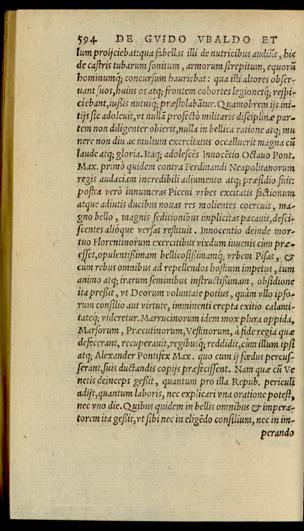 594 DE GVIDO VBALDO ET
lum proijciebat: qua fabellas illi de nutricibus audiūt, hic
de castris tubarum sonitum, armorum strepitum, equorū
hominumq; concursum hauriebat: qua illi altores obser-
uant suos, huius os atq; frontem cohortes legionesq; respi-
ciebant, iussis nutuiq; præstolabātur. Quamobrem ijs ini-
tijs sic adoleuit, vt nullā profectò militaris disciplinæ par-
tem non diligenter obierit, nulla in bellica ratione atq; mu
nere non diu ac multum exercitatus occalluerit magna cū
laude atq; gloria. Itaq; adolescēs Innocētio Octauo Pont.
Max. primò quidem contra Ferdinandi Neapolitanorum
regis audaciam incredibili adiumento atq; præsidio fuit:
postea verò innumeras Piceni vrbes excitatis factionum
atque adiutis ducibus nouas res molientes coercuit, ma-
gno bello, magnis seditionibus implicitas pacauit, desci-
scentes alióque versas restituit. Innocentio deinde mor-
tuo Florentinorum exercitibus vixdum iuuenis cùm præ-
esset, opulentissimam bellicosissimamq; vrbem Pisas, &
cum rebus omnibus ad repellendos hostium impetus, tum
animo atq; irarum seminibus instructissimam, obsidione
ita pressit, vt Deorum voluntate potius, quàm vllo ipso-
rum consilio aut virtute, imminenti erepta exitio calami-
tateq; videretur. Marrucinorum idem mox plura oppida,
Marsorum, Præcutinorum, Vestinorum, à fide regia quæ
defecerant, recuperauit, regibusq; reddidit, cùm illum ipsi
atq; Alexander Pontifex Max. quo cum ij fœdus percus-
serant, suis ductandis copijs præfecissent. Nam quæ cū Ve
netis deinceps gessit, quantum pro illa Repub. periculi
adijt, quantum laboris, nec explicari vna oratione potest,
nec vno die. Quibus quidem in bellis omnibus & impera-
torem ita gessit, vt sibi nec in eligēdo consilium, nec in im-
perando